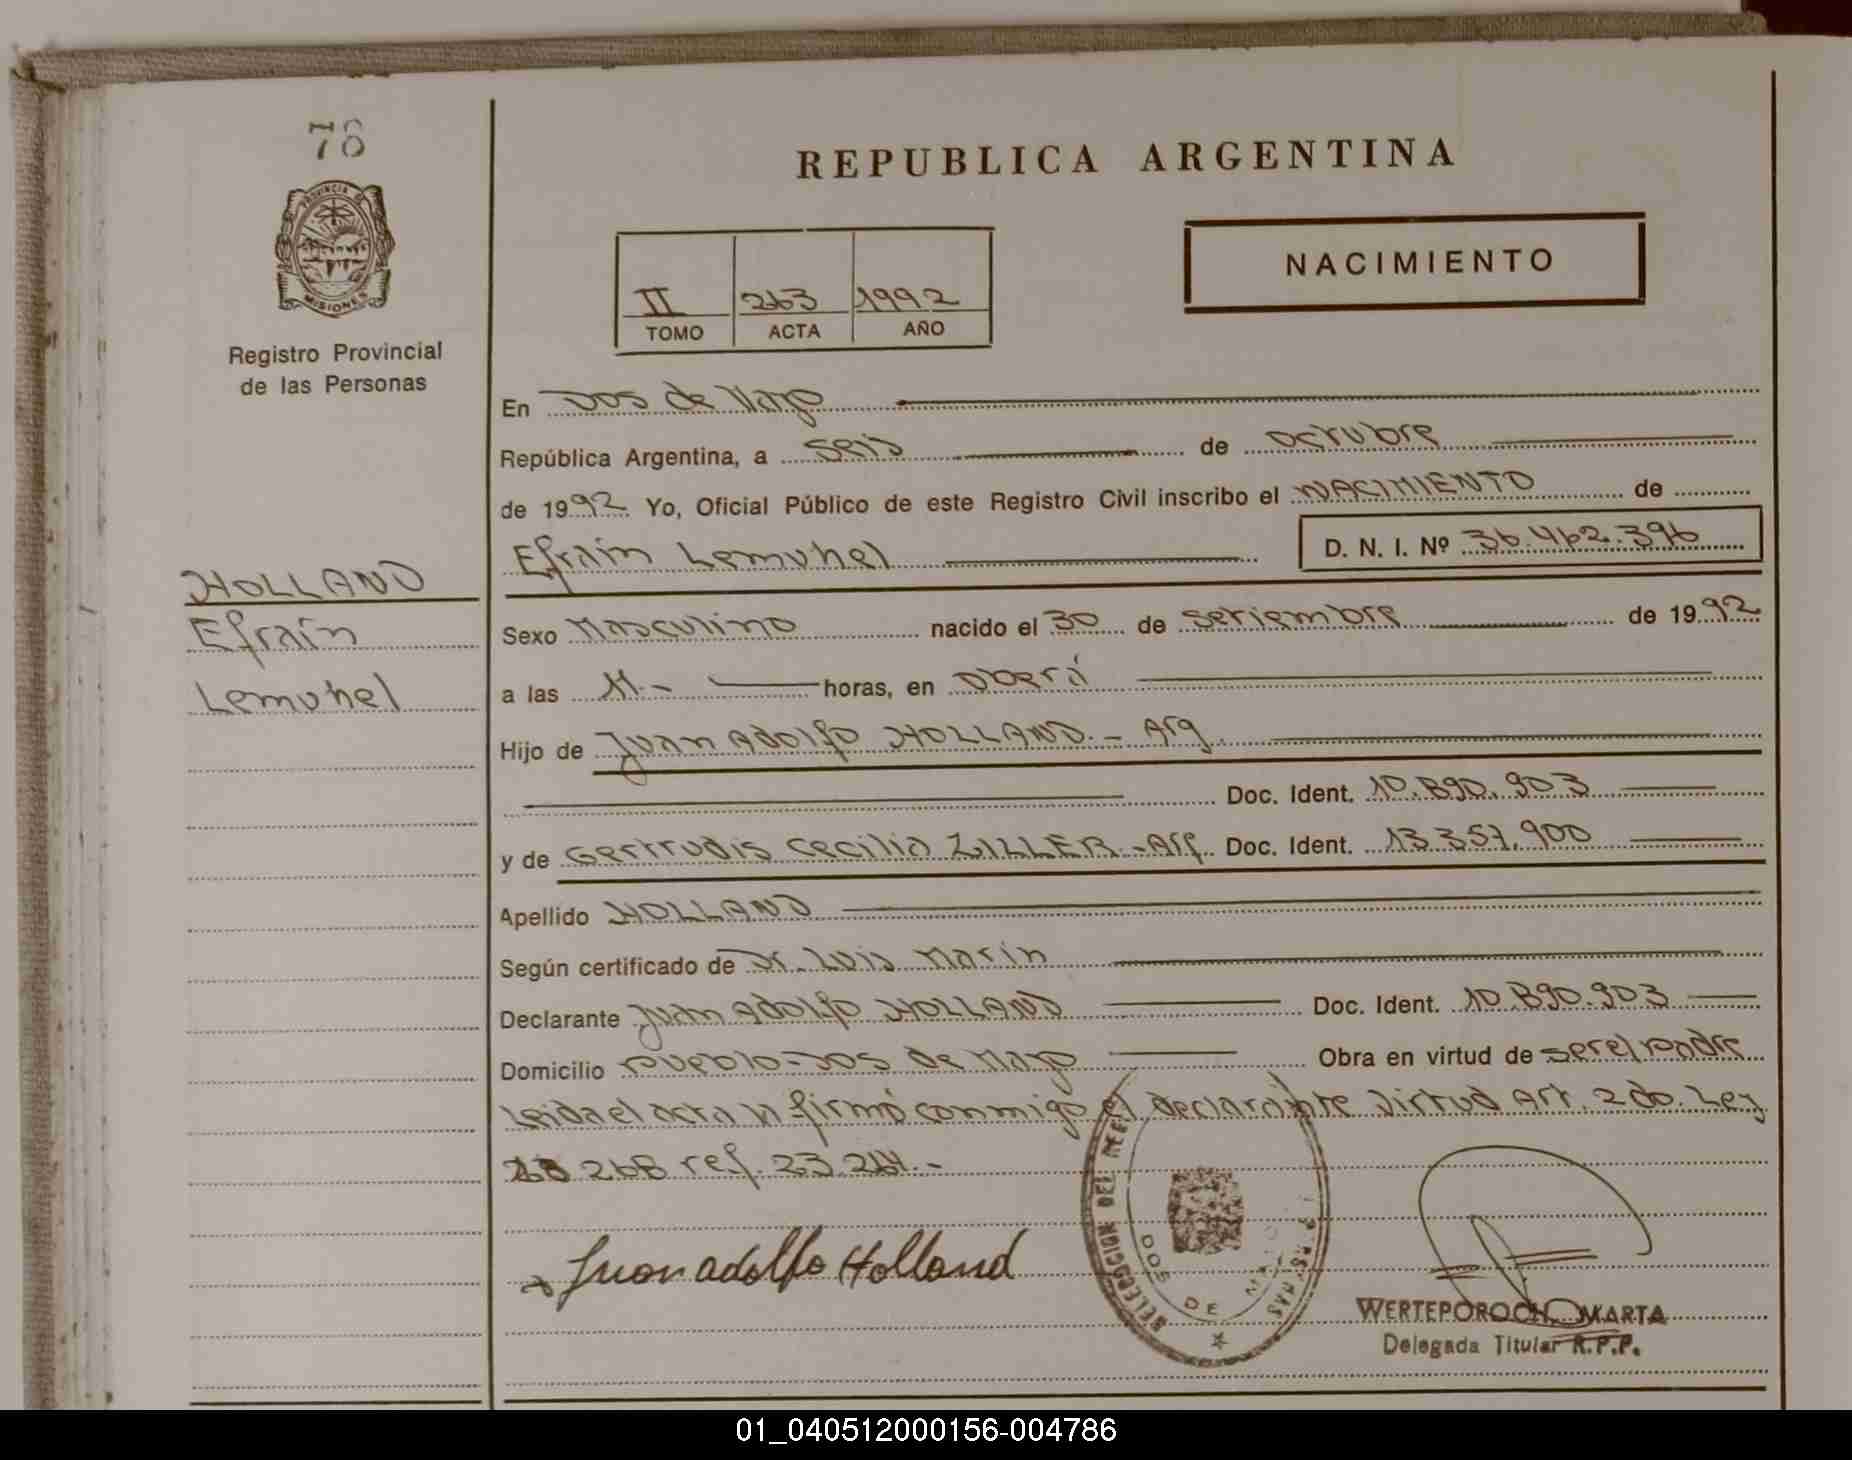 76
PROVINCIA DE
MISIONES
Registro Provincial
de las Personas
HOLLAND
Efraín
Lemuhel
REPUBLICA ARGENTINA
NACIMIENTO
II 263 1992
TOMO ACTA AÑO
En Dos de Mayo
República Argentina, a seis de octubre
de 1992 Yo, Oficial Público de este Registro Civil inscribo el NACIMIENTO de
Efraín Lemuhel D. N. I. Nº 36.462.396
Sexo Masculino nacido el 30 de setiembre de 1992
a las 11.- horas, en Oberá
Hijo de Juan Adolfo HOLLAND.- Arg.
Doc. Ident. 10.890.903
y de Gertrudis Cecilia ZILLER.-Arg. Doc. Ident. 13.357.900
Apellido HOLLAND
Según certificado de Dr. Luis Marín
Declarante Juan Adolfo HOLLAND Doc. Ident. 10.890.903
Domicilio Pueblo-Dos de Mayo Obra en virtud de ser el padre
Leida el acta la firmó conmigo el declarante Virtud Art. 2do. Ley
268 ref. 23.264.-
Juan adolfo Holland
DELEGACION DEL REG
DOS DE MAYO
WERTEPOROCH, MARTA
Delegada Titular R.P.P.
01_040512000156-004786